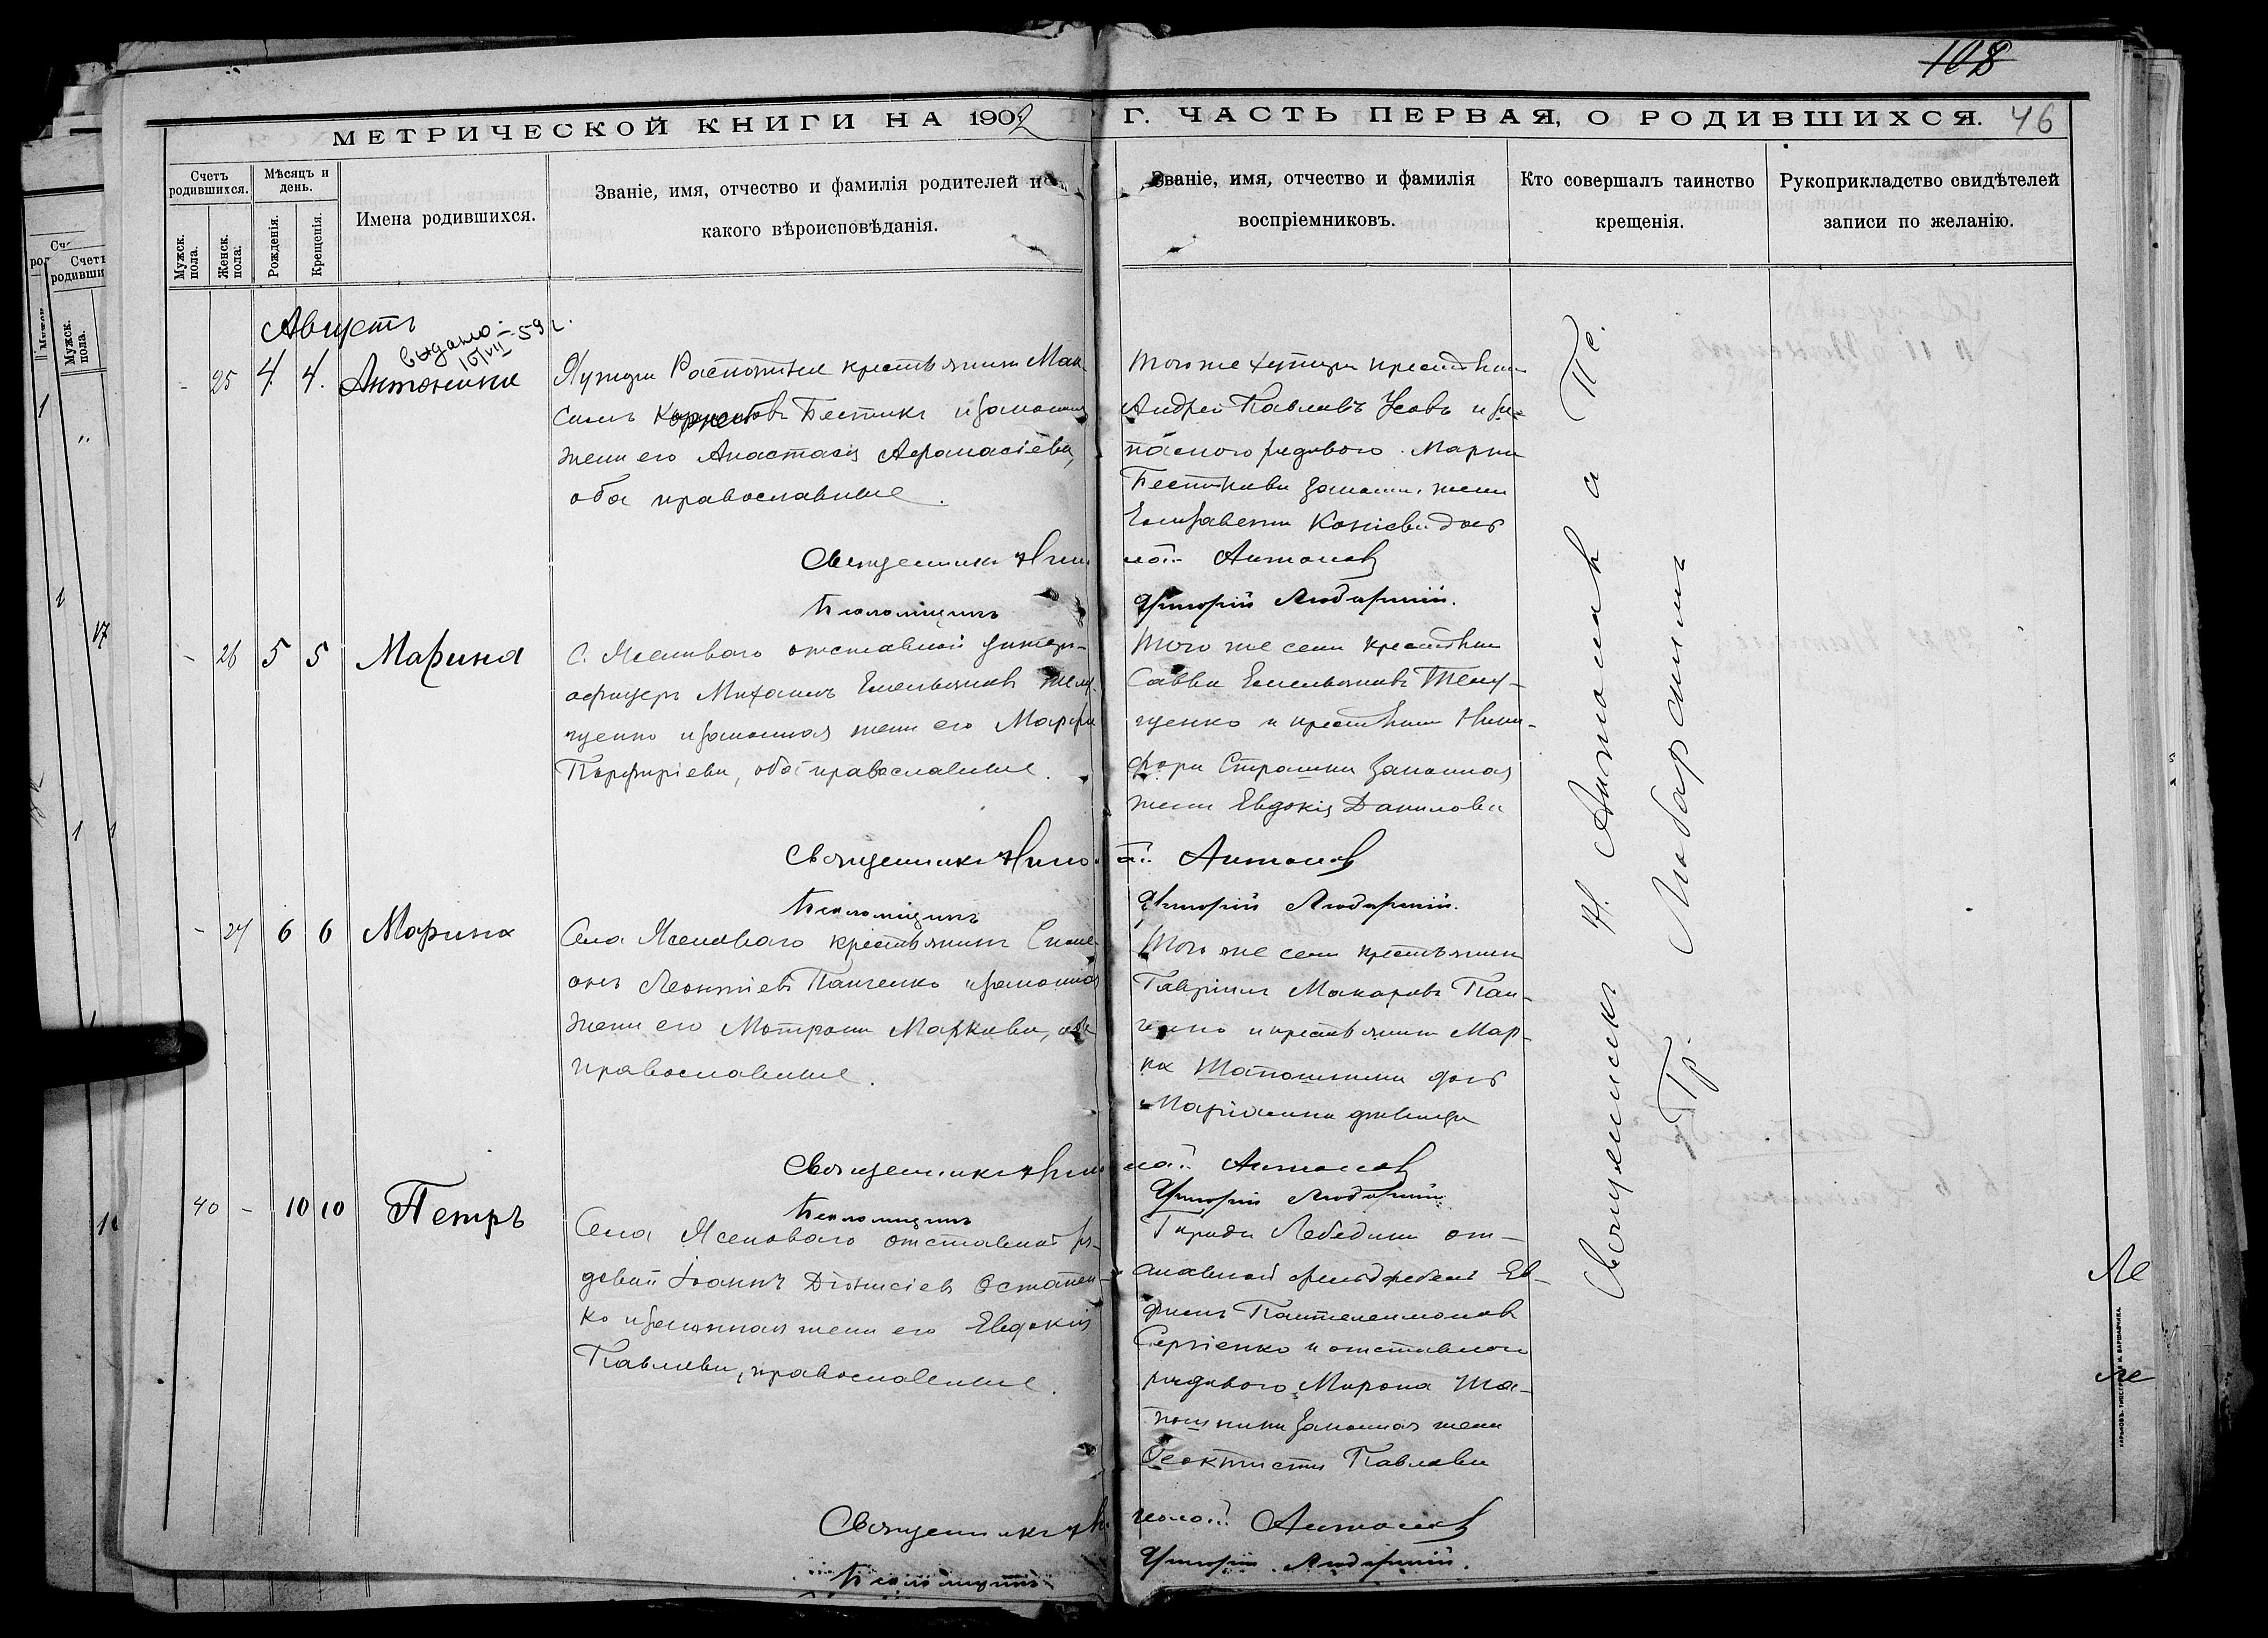 108
МЕТРИЧЕСКОЙ КНИГИ НА 1902 Г. ЧАСТЬ ПЕРВАЯ, О РОДИВШИХСЯ. 46
Счетъ родившихся.
Мужск. пола.
Женск. пола.
Мѣсяцъ и день.
Рожденія.
Крещенія.
Имена родившихся.
Званіе, имя, отчество и фамилія родителей и
какого вѣроисповѣданія.
Званіе, имя, отчество и фамилія
воспріемниковъ.
Кто совершалъ таинство
крещенія.
Рукоприкладство свидѣтелей
записи по желанію.
Августъ
выдано
10/VII-59 г.
- 25 4. 4. Антонина
крестьянинъ Мак-
симъ Бестикъ и законная
жена его Анастасія Афанасіева,
оба православные.
Того же хутора крестьянинъ
Андрей Павловъ Усовъ и за-
паснаго рядового Марка
законная жена
Елизавета
Священникъ Николай Антоновъ
Псаломщикъ Григорій
- 26 5 5 Марина
С. Ясеноваго отставной унтеръ-
офицеръ Михаилъ Емельяновъ
и законная жена его Марфа
Порфиріева, оба православные.
Того же села крестьянинъ
Савва Емельяновъ
и крестьянина Ники-
фора Страшка законная
жена Евдокія Данилова
Священникъ Николай Антоновъ
Псаломщикъ Григорій
- 27 6 6 Марина
Села Ясеноваго крестьянинъ Симе-
онъ Леонтіевъ Панченко и законная
жена его Матрона Маркова, оба
православные.
Того же села крестьянинъ
Гавріилъ Макаровъ Пан-
ченко и крестьянина Мар-
ка Шапошника дочь
Маріанна дѣвица
Священникъ Николай Антоновъ
Псаломщикъ Григорій
40 - 10 10 Петръ
Села Ясеноваго отставной ря-
довой Іоаннъ Діонисіевъ Остапен-
ко и законная жена его Евдокія
Павлова, православные.
Города Лебедина от-
ставной фельдфебель Еф-
Пантелеимоновъ
Сергіенко и отставного
рядового Мирона Ша-
пошника законная жена
Феоктиста Павлова
Священникъ Николай Антоновъ
Псаломщикъ Григорій
Священникъ Н. Антоновъ а Пс.
Гр.
Ле
ле